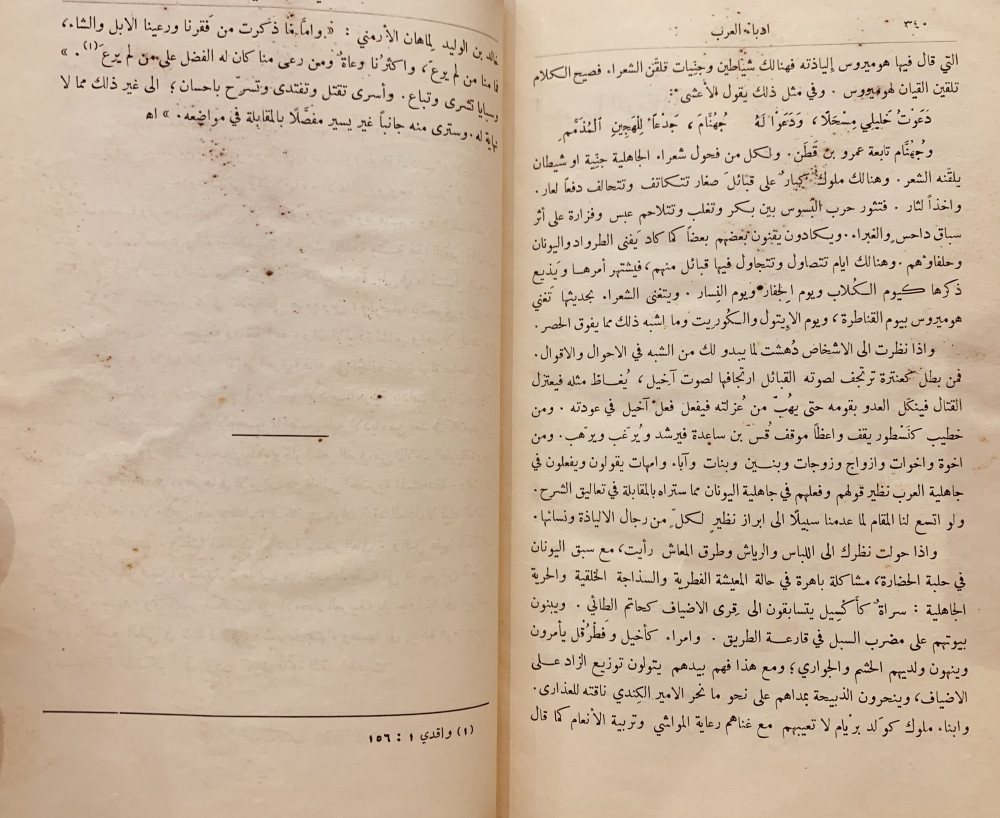 ٣٤٠
ادباء العرب
التي قال فيها هوميروس إلياذته فهنالك شياطين وجنِّيات تلقّن الشعراء فصيح الكلام
تلقين القيان لهوميروس . وفي مثل ذلك يقول الأعشى :
دَعَوْتُ خَليلي مِسْحَلًا، وَدَعَوْا لَهُ جُهنَّامَ ، جَدْعاً لِلْهَجينِ المُذَمَّمِ
وجُهنَّام تابعة عمرو بن قَطَن . ولكل من فحول شعراء الجاهلية جنّية او شيطان
يلقّنه الشعر . وهنالك ملوك كبار على قبائل صغار تتكاتف وتتحالف دفعاً لعار.
واخذاً لثار . فتثور حرب البسوس بين بكر وتغلب وتتلاحم عبس وفزارة على أثر
سباق داحس والغبراء . ويكادون يفنون بعضهم بعضاً كما كاد يَفنى الطرواد واليونان
وحلفاؤهم . وهنالك ايام تتصاول وتتجاول فيها قبائل منهم ، فيشتهر أمرها ويَذيع
ذكرها كيوم الكُلاب ويوم الجفار ويوم النِسار . ويتغنى الشعراء بحديثها تَغني
هوميروس بيوم القناطرة ، ويوم الإيتول والكُوريت وما اشبه ذلك مما يفوق الحصر.
واذا نظرت الى الاشخاص دُهشت لما يبدو لك من الشبه في الاحوال والاقوال.
فمن بطل كعنترة ترتجف لصوته القبائل ارتجافها لصوت آخيل ، يُغاظ مثله فيعتزل
القتال فينكّل العدو بقومه حتى يهُبّ من عُزلته فيفعل فعل آخيل في عودته . ومن
خطيب كنَسْطور يقف واعظاً موقف قُسّ بن ساعدة فيرشد ويُرغّب ويرهّب . ومن
اخوة واخوات وازواج وزوجات وبنين وبنات وآباء وامهات يقولون ويفعلون في
جاهلية العرب نظير قولهم وفعلهم في جاهلية اليونان مما ستراه بالمقابلة في تعاليق الشرح.
ولو اتسع لنا المقام لما عدمنا سبيلًا الى ابراز نظيرٍ لكلّ من رجال الالياذة ونسائها.
واذا حولت نظرك الى اللباس والرياش وطرق المعاش رأيت ، مع سبق اليونان
في حلبة الحضارة، مشاكلة باهرة في حالة المعيشة الفطرية والسذاجة الخلقية والحرية
الجاهلية : سراةٌ كأَكسيل يتسابقون الى قِرى الاضياف كحاتم الطائي . ويبنون
بيوتهم على مضرب السبل في قارعة الطريق . وامراء كأخيل وفَطْرُقل يأمرون
وينهون ولديهم الحشم والجواري؛ ومع هذا فهم بيدهم يتولون توزيع الزاد على
الاضياف، وينحرون الذبيحة بمداهم على نحو ما نحر الامير الكِندي ناقته للعذارى.
وابناء ملوك كولد بريام لا تعيبهم مع غناهم رعاية المواشي وتربية الأنعام كما قال
خالد بن الوليد لماهان الأرمني : « واما ما ذكرت من فقرنا ورعينا الابل والشاء،
فما منا من لم يرعَ ، واكثرُنا رعاةٌ ومن رعى منا كان له الفضل على من لم يرعَ(١). »
وسبايا تشرى وتباع . وأسرى تقتل وتفتدى وتسرّح باحسان ؛ الى غير ذلك مما لا
نهاية له . وسترى منه جانباً غير يسير مفصَّلًا بالمقابلة في مواضعه . » اه
(١) واقدي ١ : ١٥٦